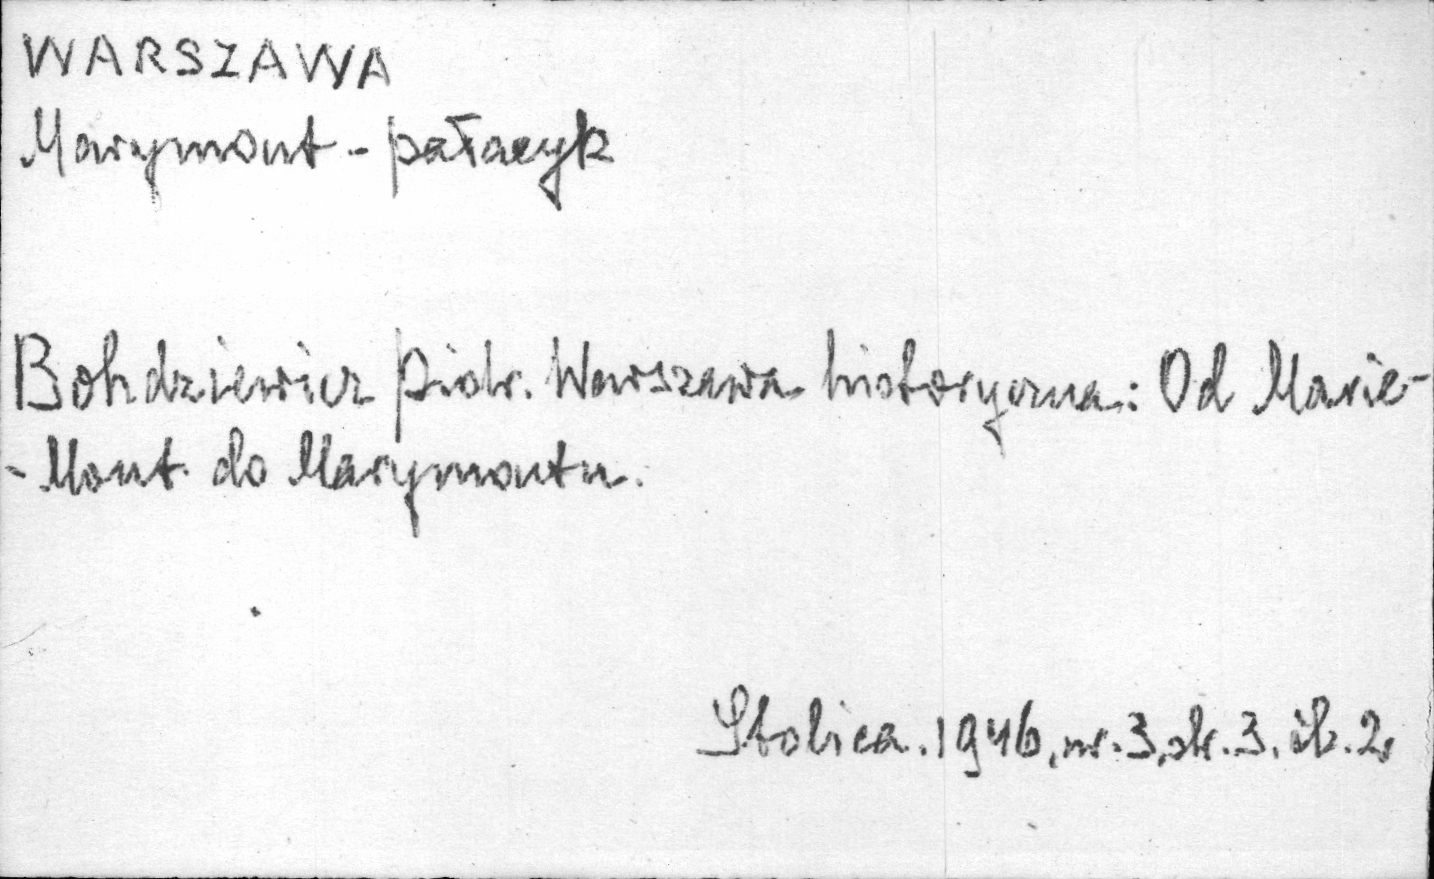 WARSZAWA
Marymont - pałacyk
Bohdziewicz Piotr. Warszawa historyczna: Od Marie-
-Mont do Marymontu.
Stolica. 1946, nr. 3, str. 3. il. 2.